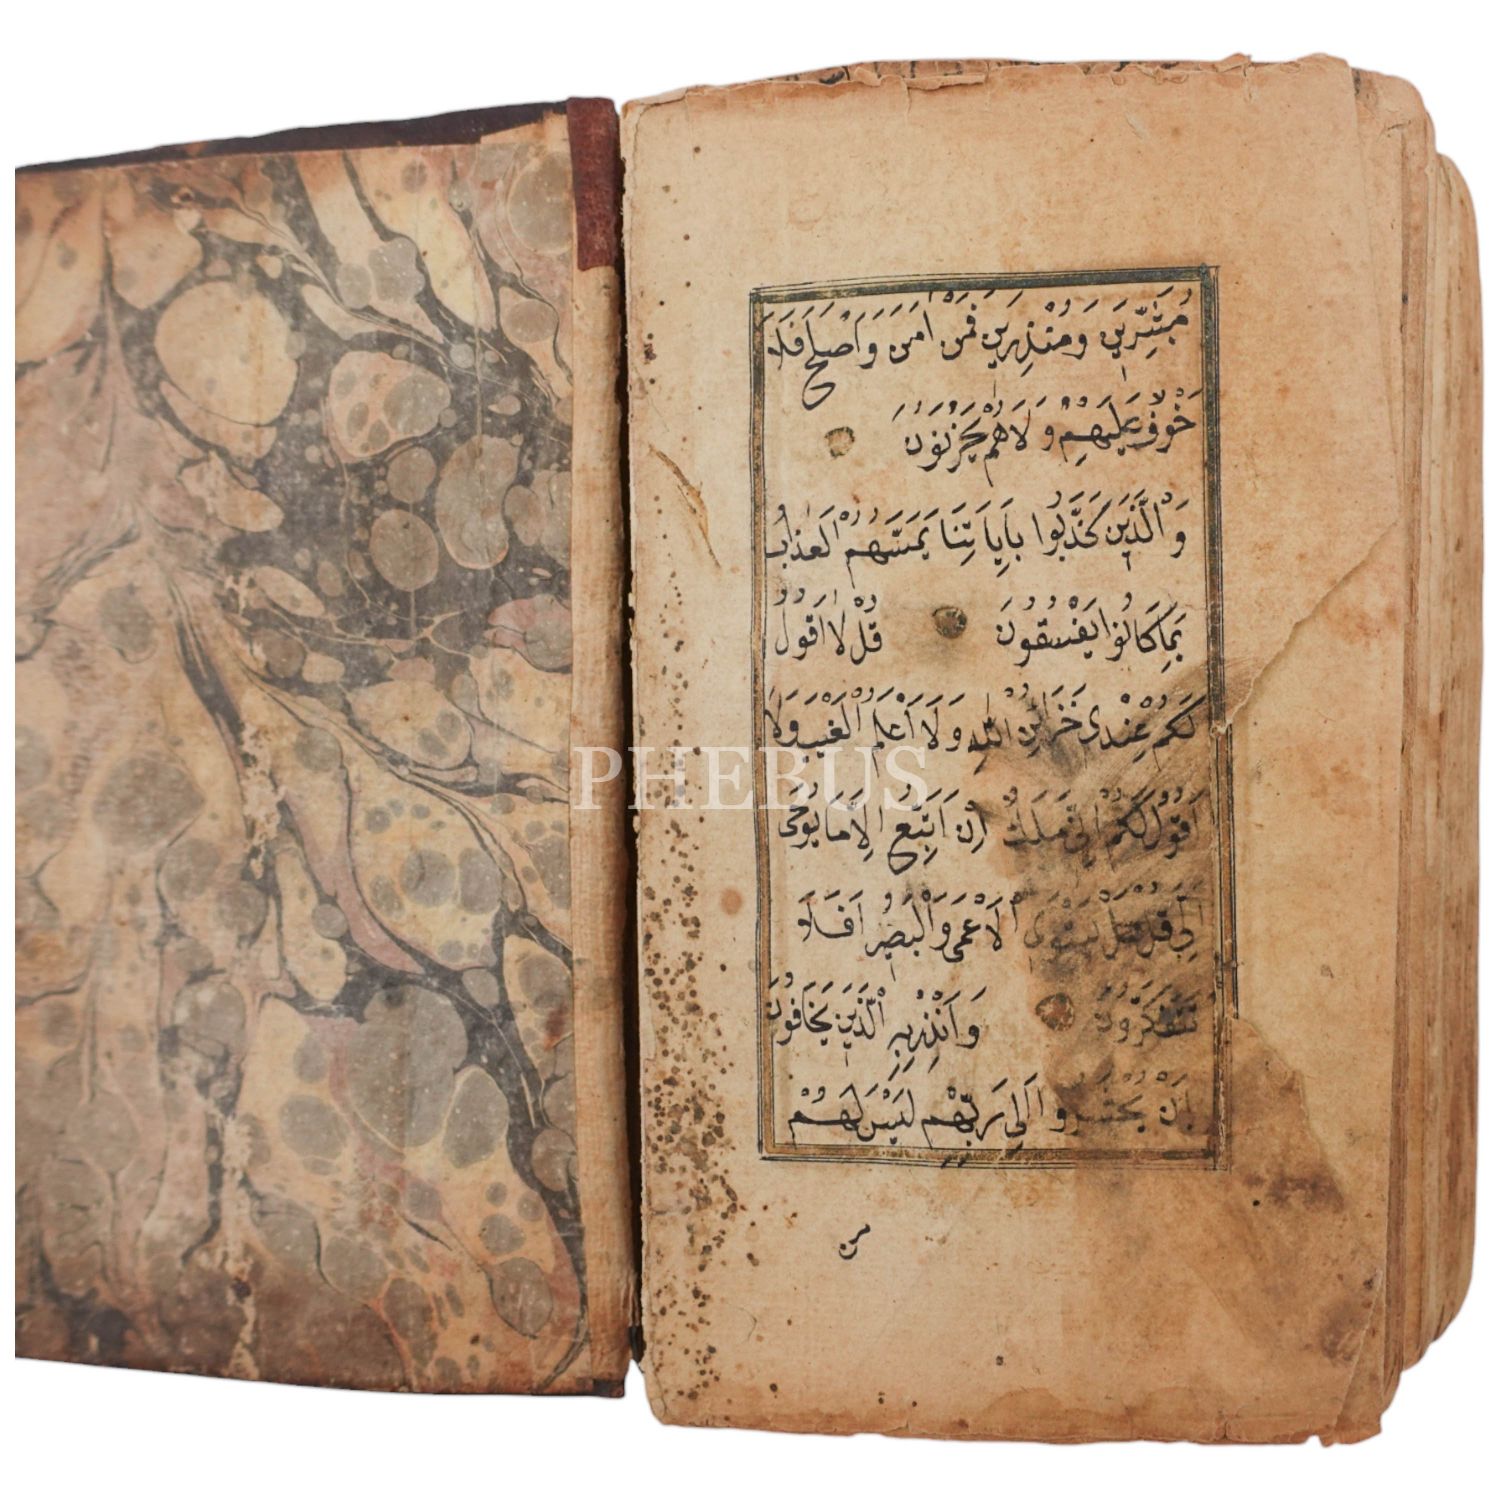 مُبَشِّرِينَ وَمُنْذِرِينَ فَمَنْ اٰمَنَ وَاَصْلَحَ فَلَا
خَوْفٌ عَلَيْهِمْ وَلَا هُمْ يَحْزَنُونَ
وَالَّذِينَ كَذَّبُوا بِاٰيَاتِنَا يَمَسُّهُمُ الْعَذَابُ
بِمَا كَانُوا يَفْسُقُونَ قُلْ لَا اَقُولُ
لَكُمْ عِنْدِى خَزَائِنُ اللهِ وَلَا اَعْلَمُ الْغَيْبَ وَلَا
اَقُولُ لَكُمْ اِنِّى مَلَكٌ اِنْ اَتَّبِعُ اِلَّا مَا يُوحَى
اِلَىَّ قُلْ هَلْ يَسْتَوِى الْاَعْمَى وَالْبَصِيرُ اَفَلَا
تَتَفَكَّرُونَ وَاَنْذِرْ بِهِ الَّذِينَ يَخَافُونَ
اَنْ يُحْشَرُوا اِلَى رَبِّهِمْ لَيْسَ لَهُمْ
من
PHEBUS